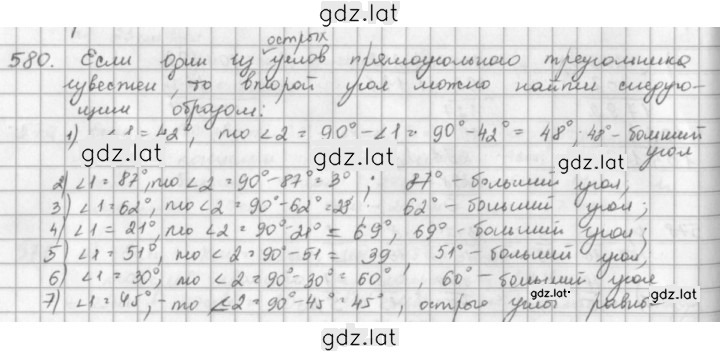 gdz.lat
острых
580. Если один из углов прямоугольного треугольника
известен, то второй угол можно найти следую-
щим образом:
1) ∠1=42°, то ∠2 = 90°-∠1= 90°-42°= 48°; 48°- больший
угол
gdz.lat
gdz.lat
2) ∠1=87°, то ∠2=90°-87°=3°; 87°-больший угол,
3) ∠1=62°, то ∠2=90°-62°=28 62°- больший угол;
4) ∠1= 21°, то ∠2=90°-21°= 69°, 69°- больший угол;
5) ∠1=51°, то ∠2=90°-51= 39 51°- больший угол,
6) ∠1=30°, то ∠2=90°-30°=60°, 60°- больший угол
7) ∠1=45°,-то ∠2=90°-45°=45°, углы
gdz.lat
gdz.lat
gdz.lat